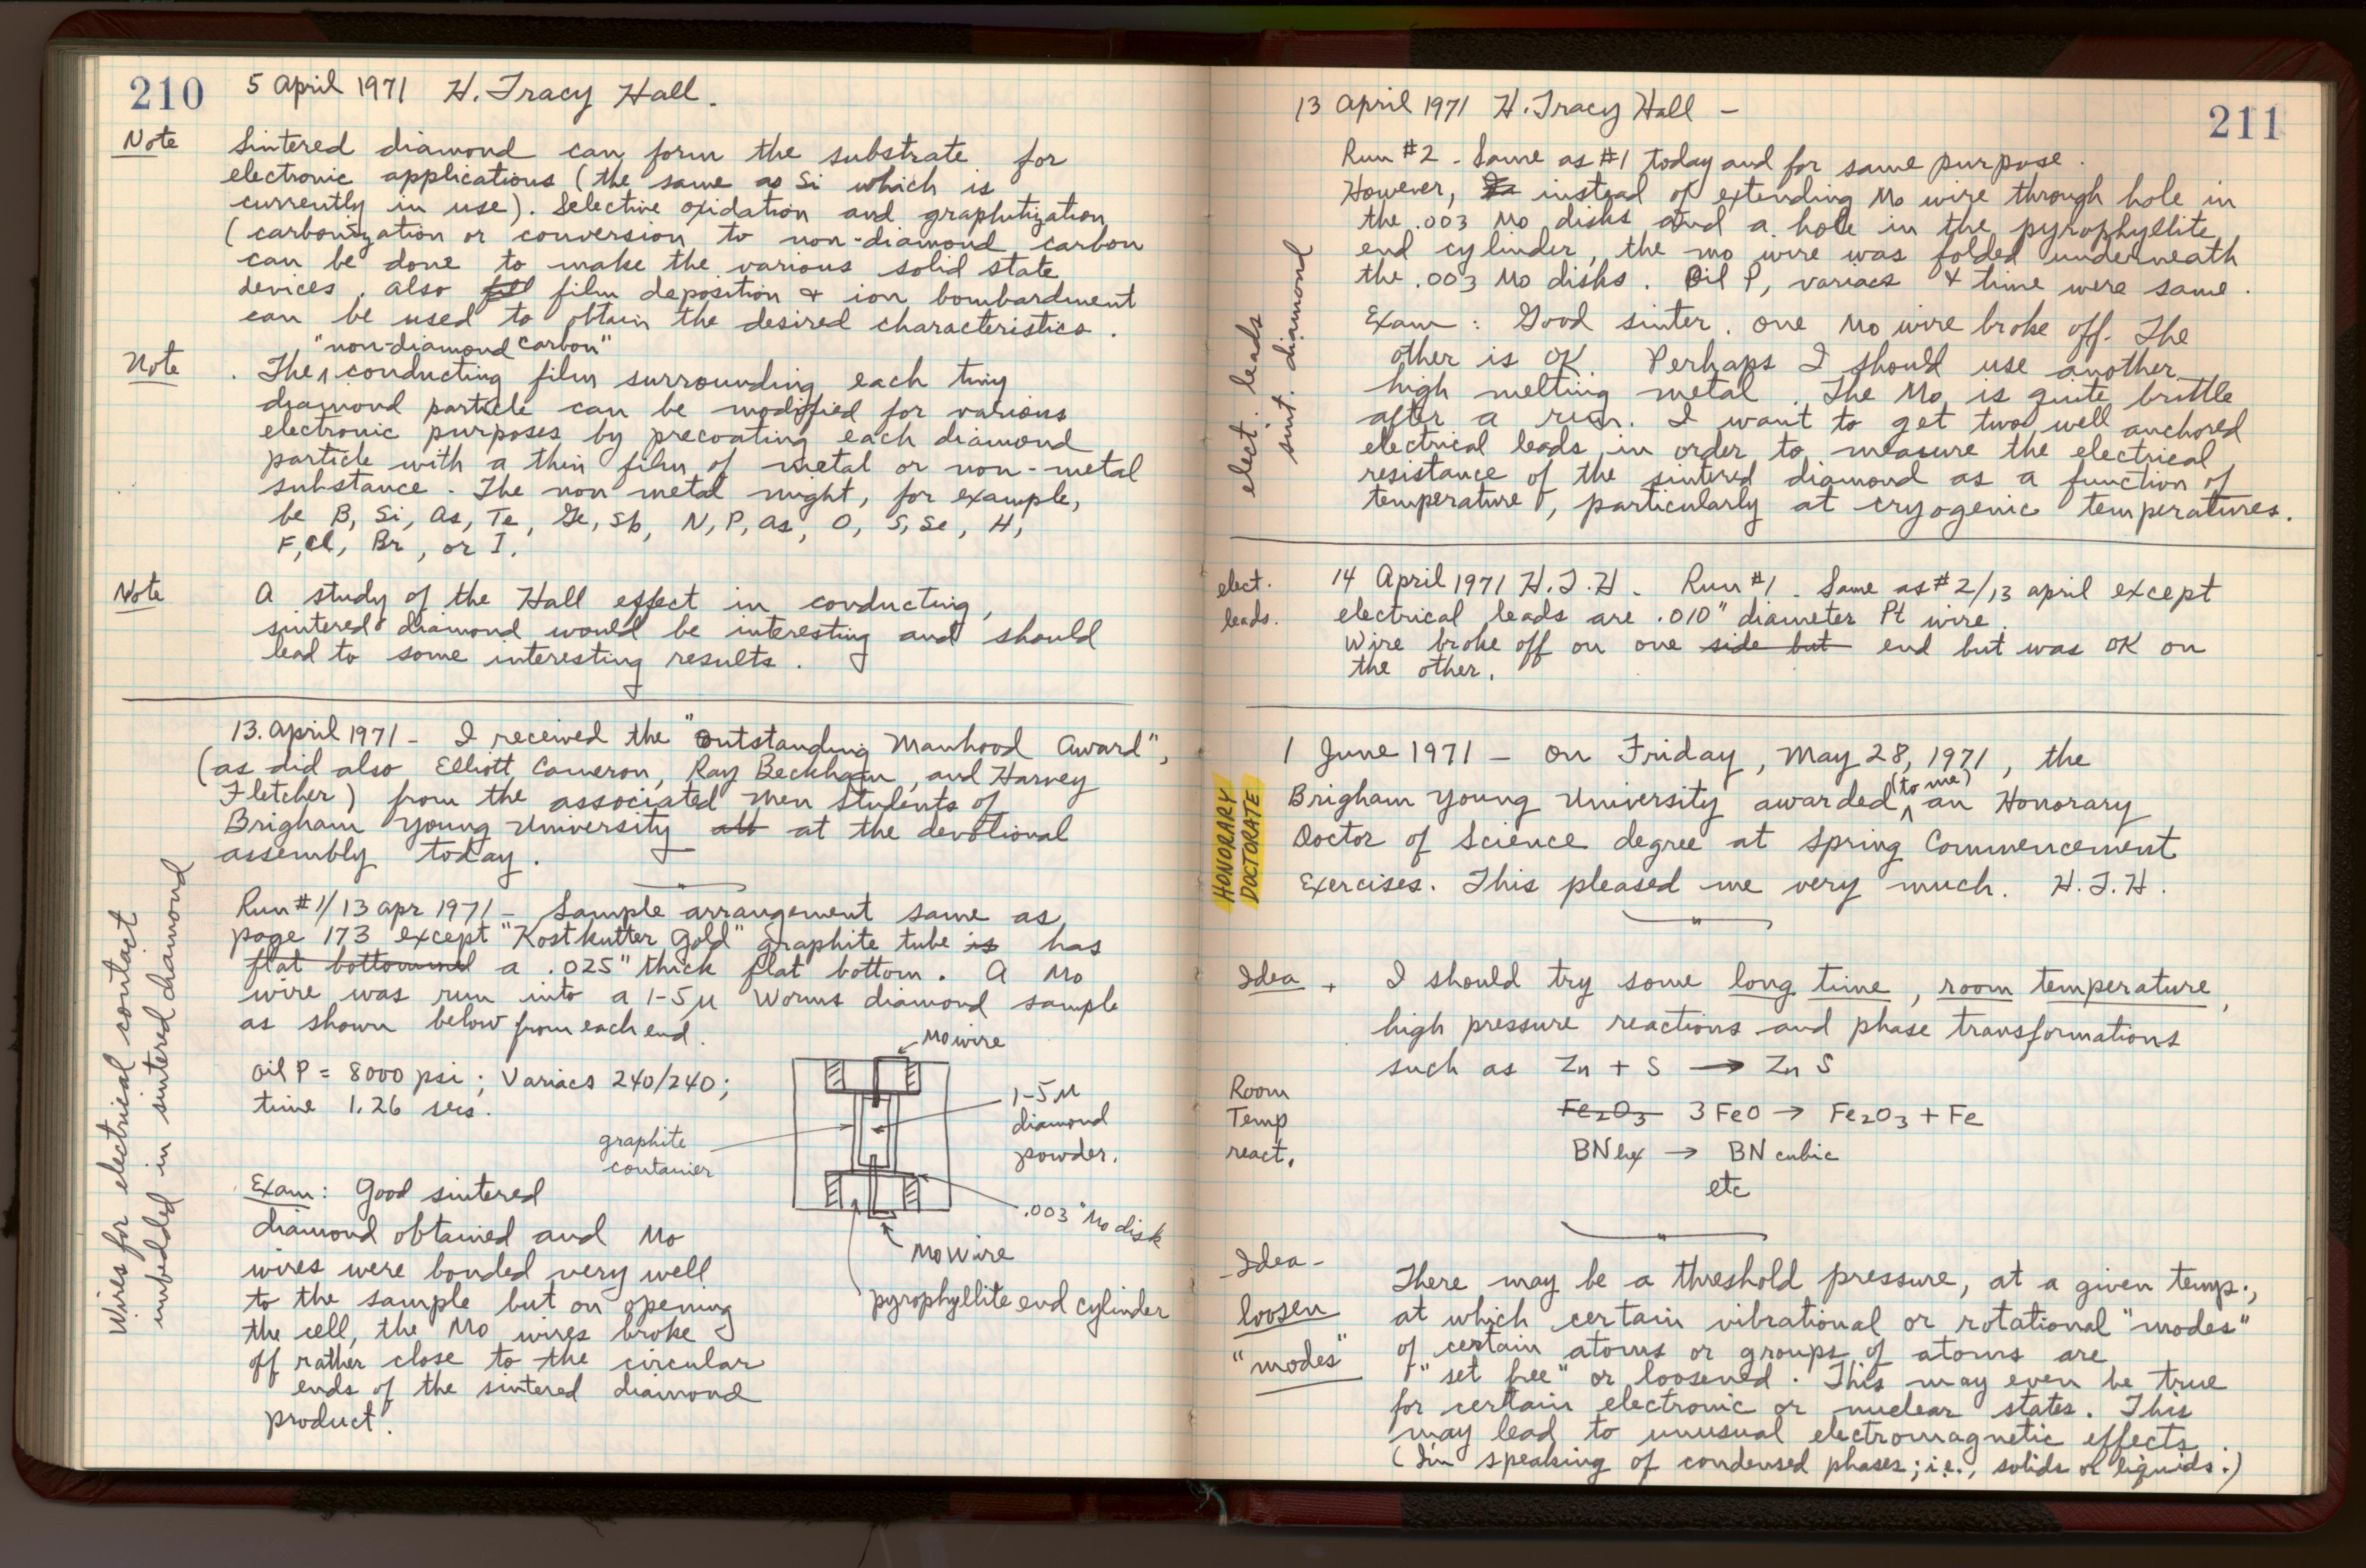 210
5 April 1971 H. Tracy Hall.
Note
Sintered diamond can form the substrate for
electronic applications (the same as Si which is
currently in use). Selective oxidation and graphitization
(carbonization or conversion to non-diamond carbon
can be done to make the various solid state
devices. Also film deposition & ion bombardment
can be used to obtain the desired characteristics.
"non-diamond carbon"
Note
. The ^ conducting film surrounding each tiny
diamond particle can be modified for various
electronic purposes by precoating each diamond
particle with a thin film of metal or non-metal
substance. The non metal might, for example,
be B, Si, As, Te, Ge, Sb, N, P, As, O, S, Se, H,
F, Cl, Br, or I.
Note
A study of the Hall effect in conducting,
sintered diamond would be interesting and should
lead to some interesting results.
13. April 1971 - I received the "Outstanding Manhood Award",
(as did also Elliott Cameron, Ray Beckham, and Harvey
Fletcher) from the associated men students of
Brigham Young University at the devotional
assembly today.
Wires for electrical contact
imbedded in sintered diamond
Run #1/13 Apr 1971 - Sample arrangement same as
page 173 except "Kostkutter Gold" graphite tube is has
flat bottomed a .025" thick flat bottom. A Mo
wire was run into a 1-5µ Worms diamond sample
as shown below from each end.
Oil P = 8000 psi; Variacs 240/240;
time 1.26 secs.
Mo wire
1-5µ
diamond
powder.
graphite
contanier
.003" Mo disk
Mo Wire
pyrophyllite end cylinder
Exam: Good sintered
diamond obtained and Mo
wires were bonded very well
to the sample but on opening
the cell, the Mo wires broke
off rather close to the circular
ends of the sintered diamond
product.
211
13 April 1971 H. Tracy Hall -
elect. leads
sint. diamond
Run #2 - Same as #1 today and for same purpose.
However, instead of extending Mo wire through hole in
the .003 Mo disks and a hole in the pyrophyllite
end cylinder, the mo wire was folded underneath
the .003 Mo disks. Oil P, variacs & time were same.
Exam: Good sinter. One Mo wire broke off. The
other is OK. Perhaps I should use another
high melting metal. The Mo is quite brittle
after a run. I want to get two well anchored
electrical leads in order to measure the electrical
resistance of the sintered diamond as a function of
temperature, particularly at cryogenic temperatures.
elect.
leads.
14 April 1971 H.T.H. - Run #1 - Same as #2/13 april except
electrical leads are .010" diameter Pt wire.
Wire broke off on one side but end but was OK on
the other.
HONORARY
DOCTORATE
1 June 1971 - On Friday, May 28, 1971, the
Brigham Young University awarded ^(to me) an Honorary
Doctor of Science degree at Spring Commencement
Exercises. This pleased me very much. H.T.H.
Idea + I should try some long time, room temperature,
high pressure reactions and phase transformations
such as Zn + S → Zn S
Room
Temp
react.
Fe2O3 3 FeO → Fe2O3 + Fe
BN hex → BN cubic
etc
-Idea-
loosen
"modes"
There may be a threshold pressure, at a given temp.,
at which certain vibrational or rotational "modes"
of certain atoms or groups of atoms are
"set free" or loosened. This may even be true
for certain electronic or nuclear states. This
may lead to unusual electromagnetic effects.
(I'm speaking of condensed phases; i.e., solids or liquids.)